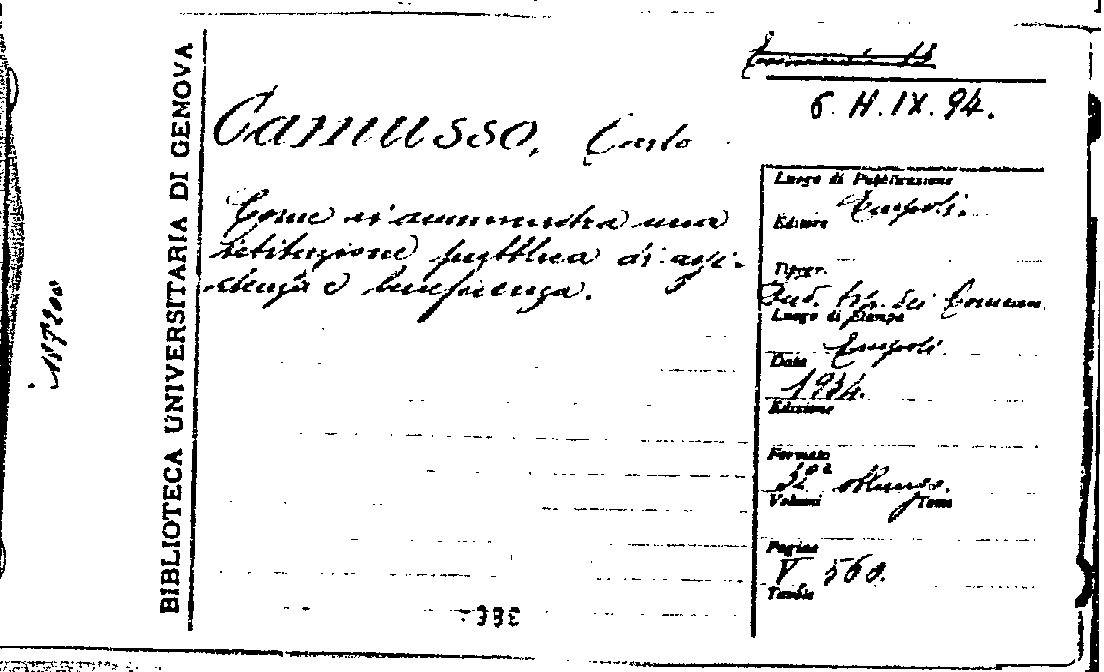 BIBLIOTECA UNIVERSITARIA DI GENOVA
6. H. IX. 94.
Camusso, Carlo
Come si amministra una
istituzione pubblica di assi-
stenza e beneficenza.
Luogo di Pubblicazione
Empoli.
Editore
Tipogr.
Ind. tip. dei Comuni
Luogo di Stampa
Empoli.
Data
1934.
Edizione
Formato
32º
Volumi Tomi
Pagine
V 560.
Tavole
187200